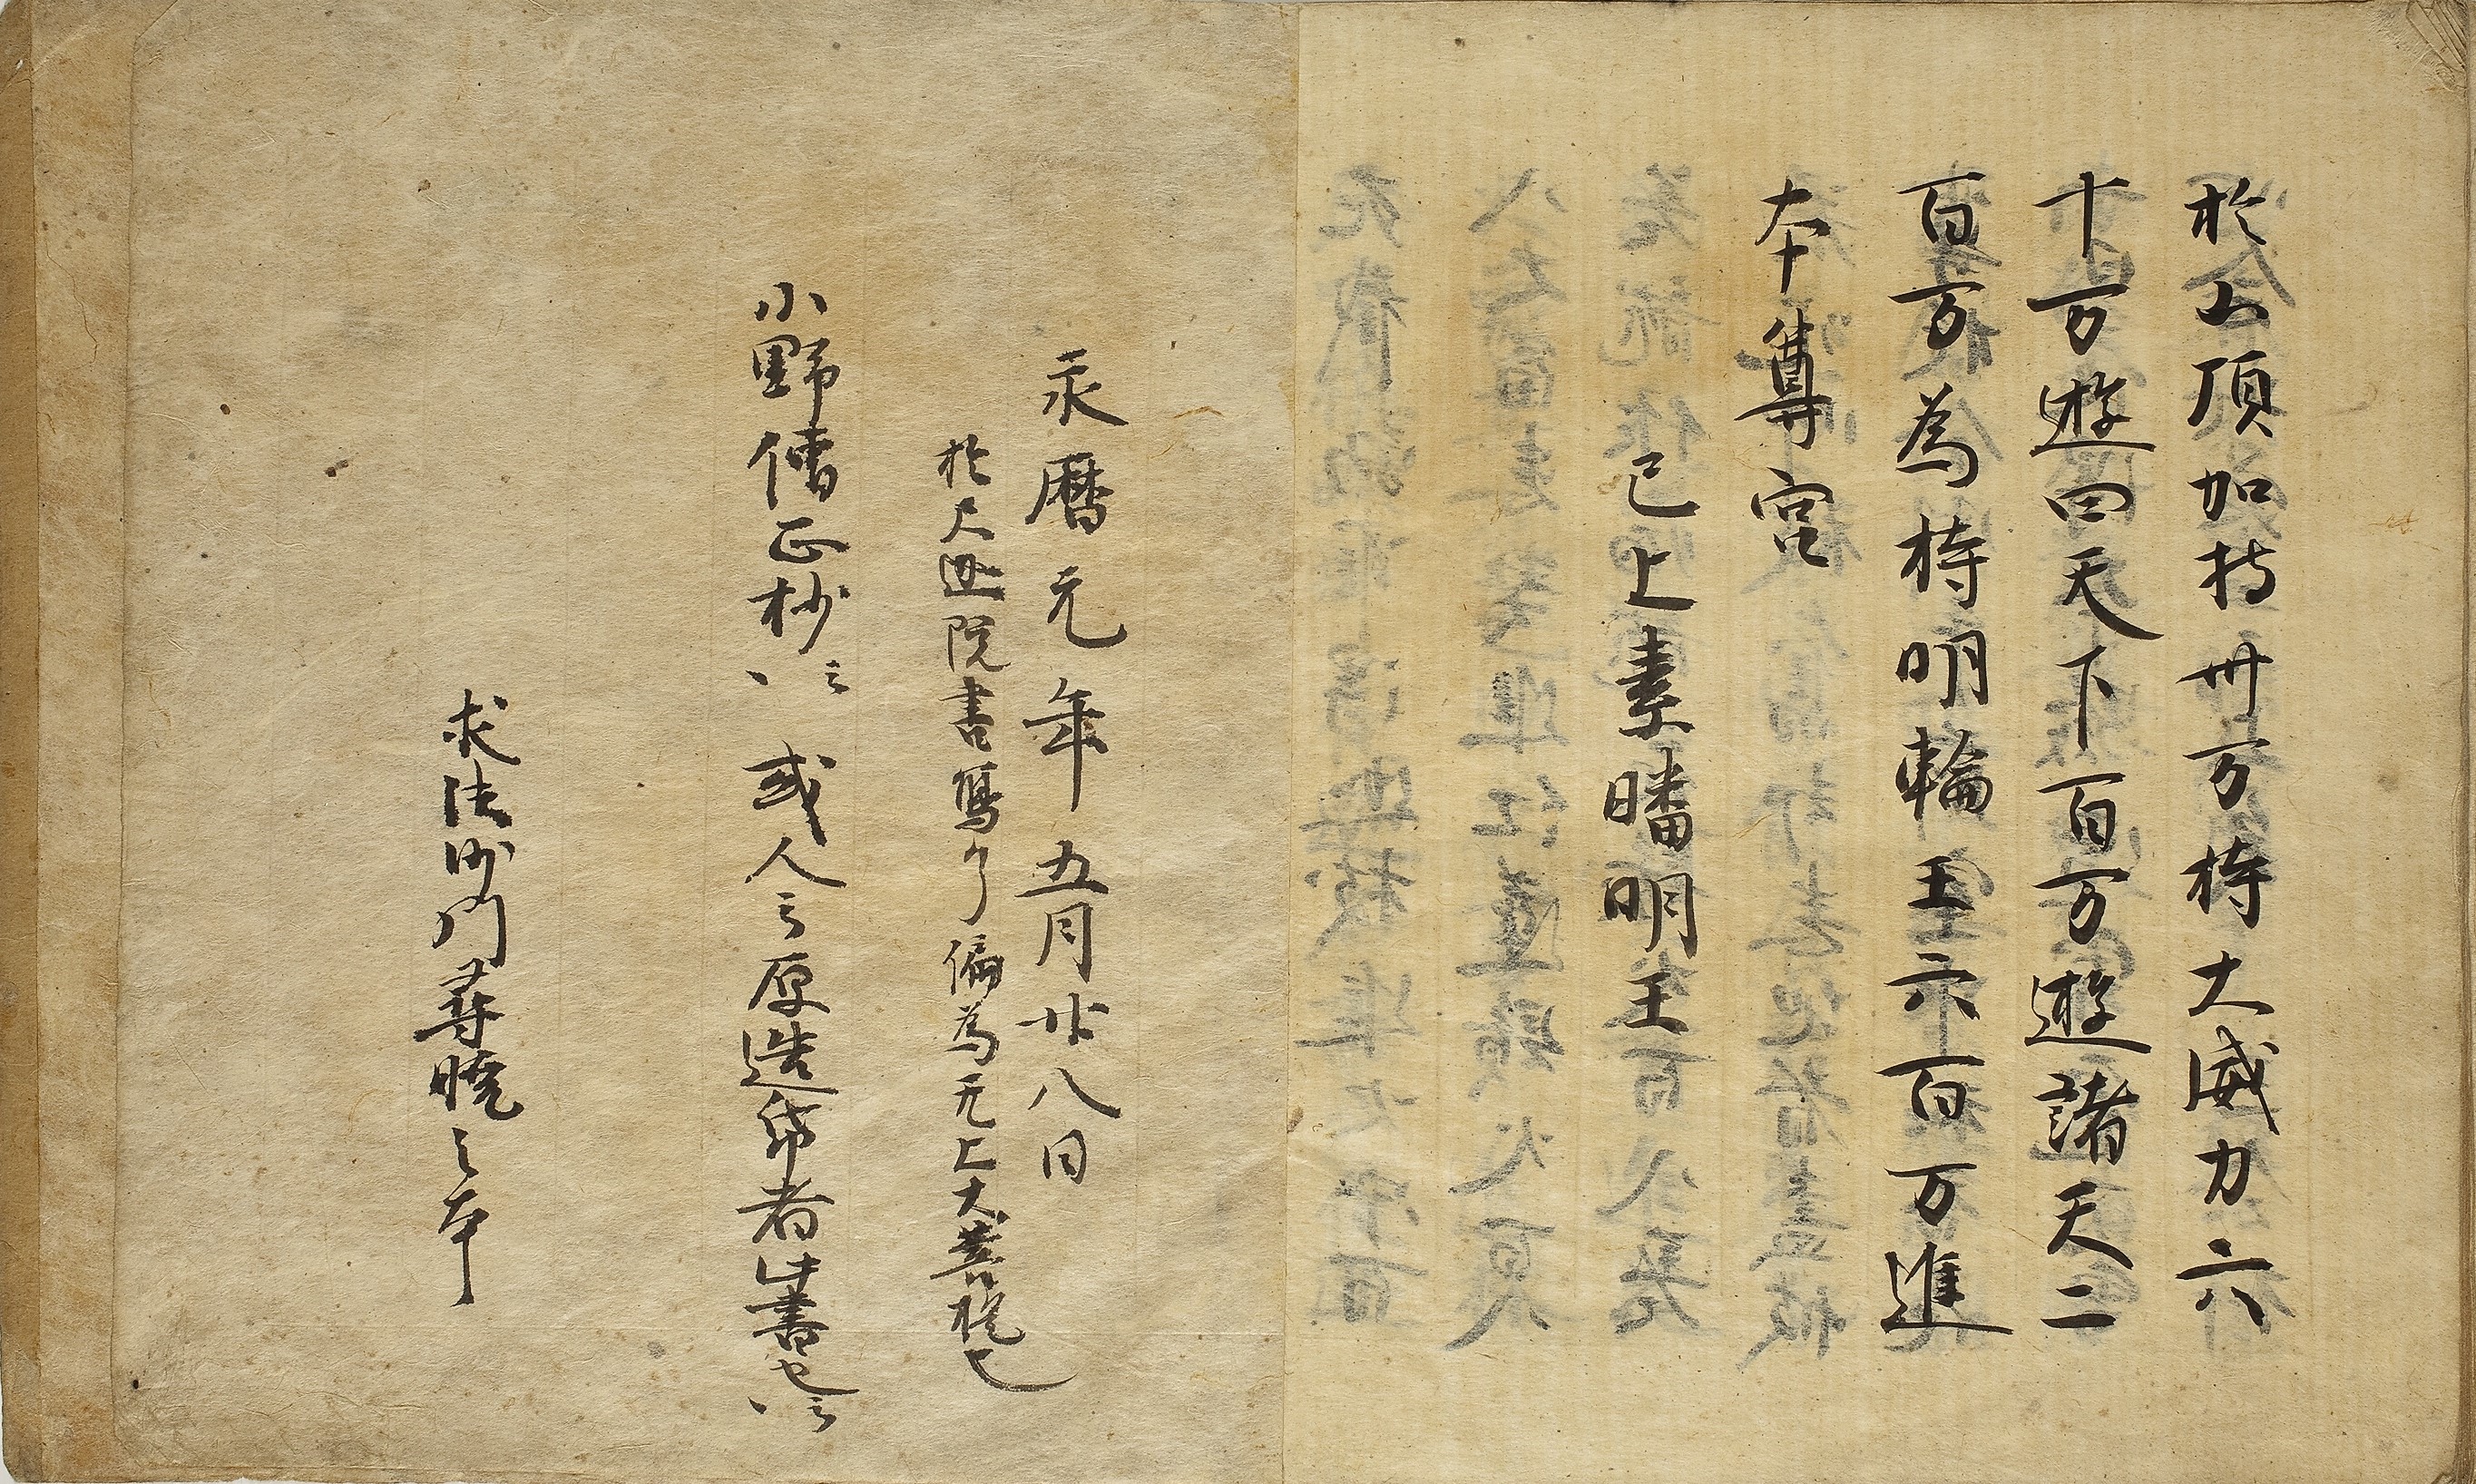 於山頂加持卅万持大威力六
十万遊四天下百万遊諸天二
百万為持明輪王六百万進
本尊宮
已上素皤明王
永暦元年五月廿八日
於大迦院書寫了偏為无上大菩提也
小野僧正抄云々 或人云厚造帋者此書也云々
求法沙門尋暁之本